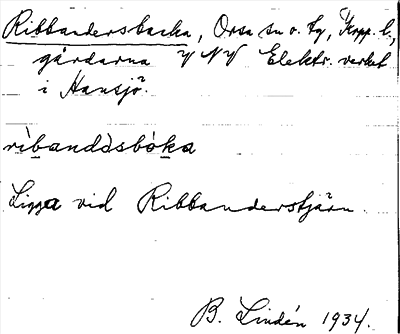 Ribbandersbacka, Orsa sn o. tg, Kopp. l.,
gårdarna V NV Elektr. verket
i Hansjö.
ribandàsbòka
Ligga vid Ribbanderstjärn.
B. Lindén 1934.